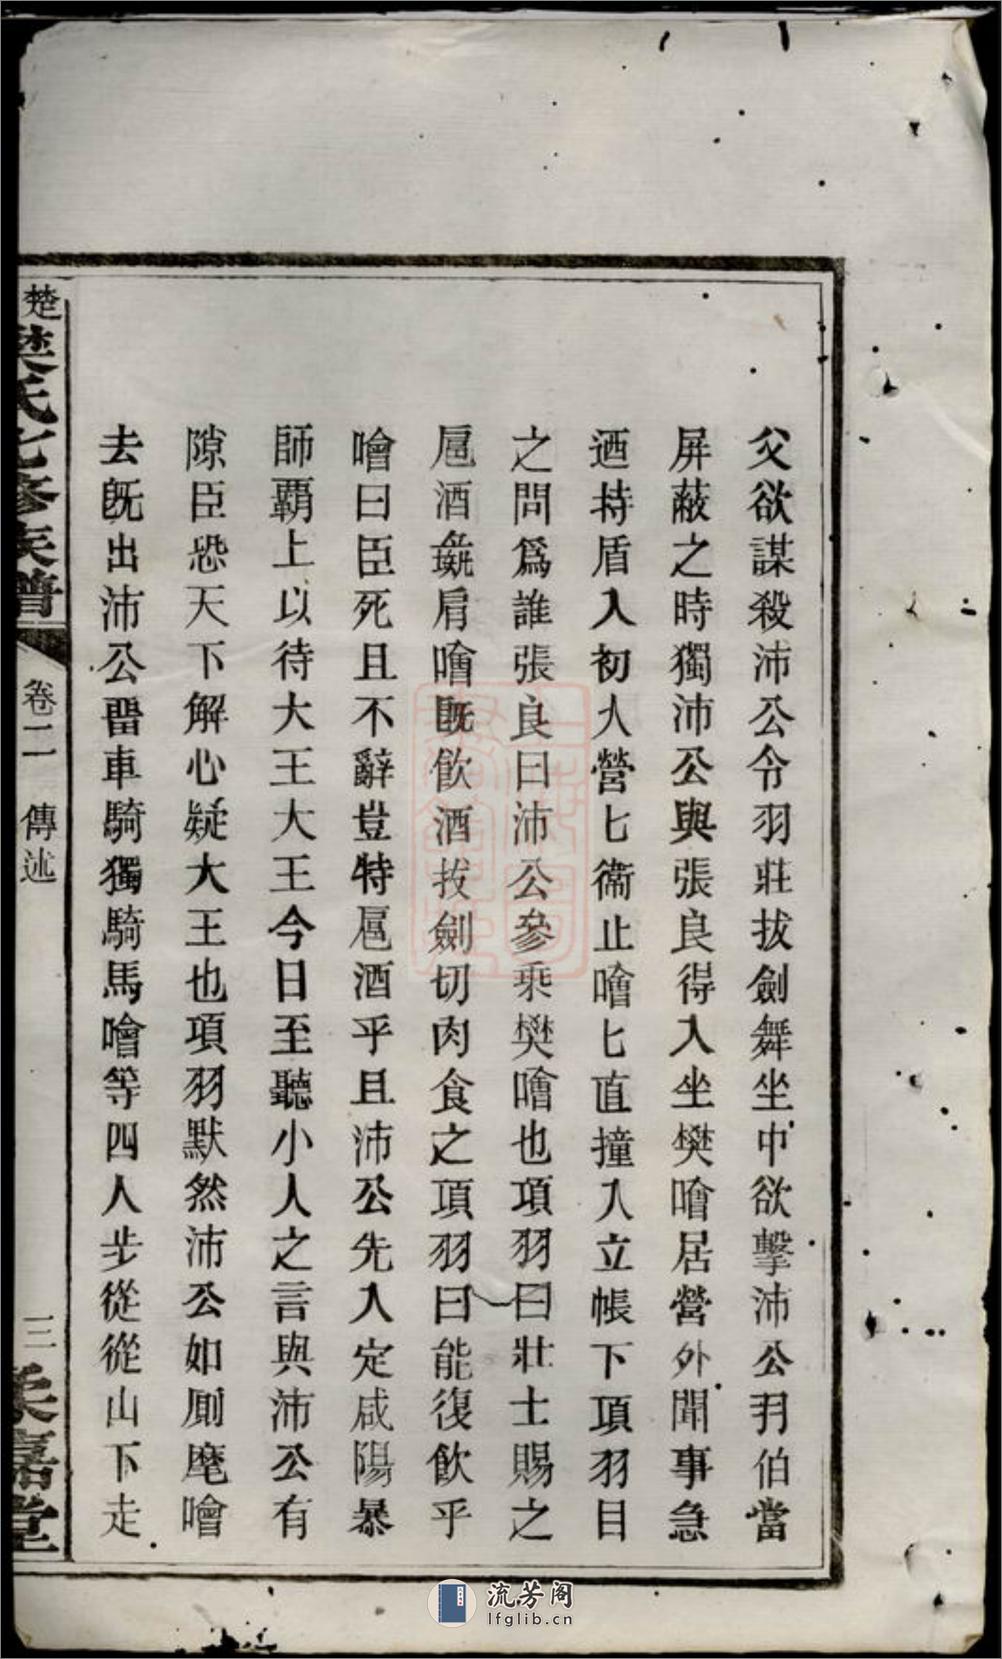 父欲謀殺沛公令羽莊拔劍舞坐中欲擊沛公羽伯當
屏蔽之時獨沛公與張良得入坐樊噲居營外聞事急
迺持盾入初人營匕衞止噲匕直撞入立帳下項羽目
之問爲誰張良曰沛公參乘樊噲也項羽曰壯士賜之
巵酒彘肩噲既飮酒拔劍切肉食之項羽曰能復飮乎
噲曰臣死且不辭豈特巵酒乎且沛公先入定咸陽暴
師覇上以待大王大王今日至聽小人之言與沛公有
隙臣恐天下解心疑大王也項羽默然沛公如厠麾噲
去旣出沛公畱車騎獨騎馬噲等四人步從從山下走
楚樊氏七修族譜 卷二 傳述 三 嘉堂
流芳阁
lfglib.cn